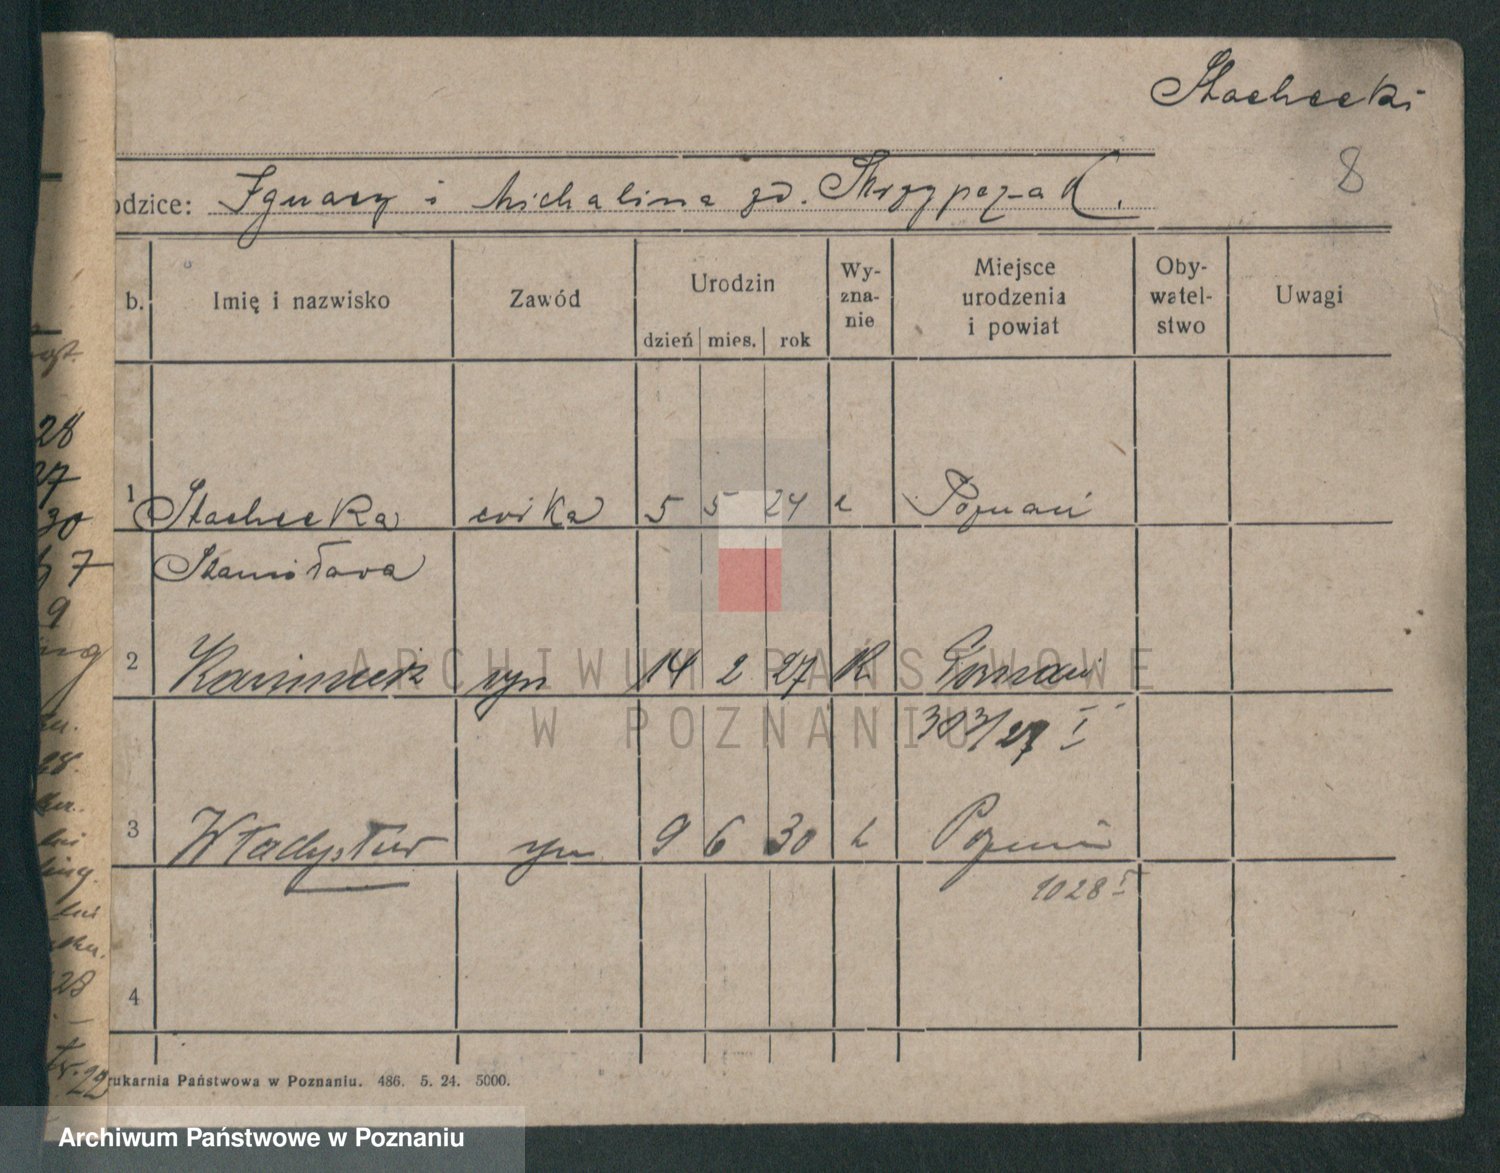 Stachecki
8
odzice: Ignacy i Michalina zd. Skrzypczak.
b. Imię i nazwisko Zawód Urodzin dzień mies. rok Wy-zna-nie Miejsce urodzenia i powiat Oby-watel-stwo Uwagi
1 Stachecka córka 5 5 24 k Poznań
Stanisława
2 Kazimierz syn 14 2 27 k Poznań
303/27 I
3 Władysław syn 9 6 30 k Poznań
1028 I
4
rukarnia Państwowa w Poznaniu. 486. 5. 24. 5000.
28
27
30
7
9
28
tr. 22
ARCHIWUM PAŃSTWOWE
W POZNANIU
Archiwum Państwowe w Poznaniu